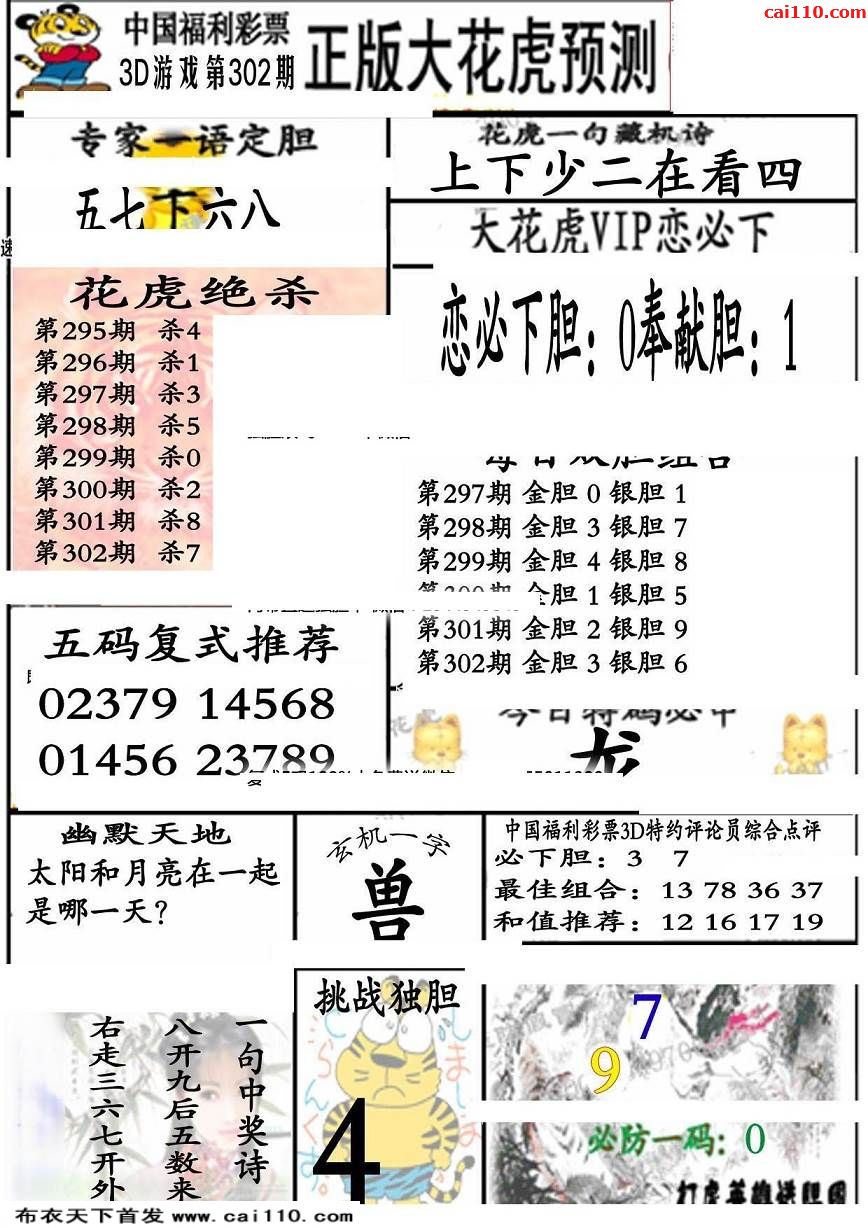 cai110.com
中国福利彩票
3D游戏第302期
正版大花虎预测
专家一语定胆
五七下六八
花虎一句藏机诗
上下少二在看四
大花虎VIP恋必下
恋必下胆：0奉献胆：1
速
花虎绝杀
第295期 杀4
第296期 杀1
第297期 杀3
第298期 杀5
第299期 杀0
第300期 杀2
第301期 杀8
第302期 杀7
每日双胆组合
第297期 金胆 0 银胆 1
第298期 金胆 3 银胆 7
第299期 金胆 4 银胆 8
第300期 金胆 1 银胆 5
第301期 金胆 2 银胆 9
第302期 金胆 3 银胆 6
五码复式推荐
02379 14568
01456 23789
花虎
今日特码必中
龙
幽默天地
太阳和月亮在一起
是哪一天？
玄机一字
兽
中国福利彩票3D特约评论员综合点评
必下胆：3 7
最佳组合：13 78 36 37
和值推荐：12 16 17 19
一句中奖诗
八开九后五数来
右走三六七开外
挑战独胆
4
7
9
必防一码：0
打虎英雄送胆图
布衣天下首发 www.cai110.com